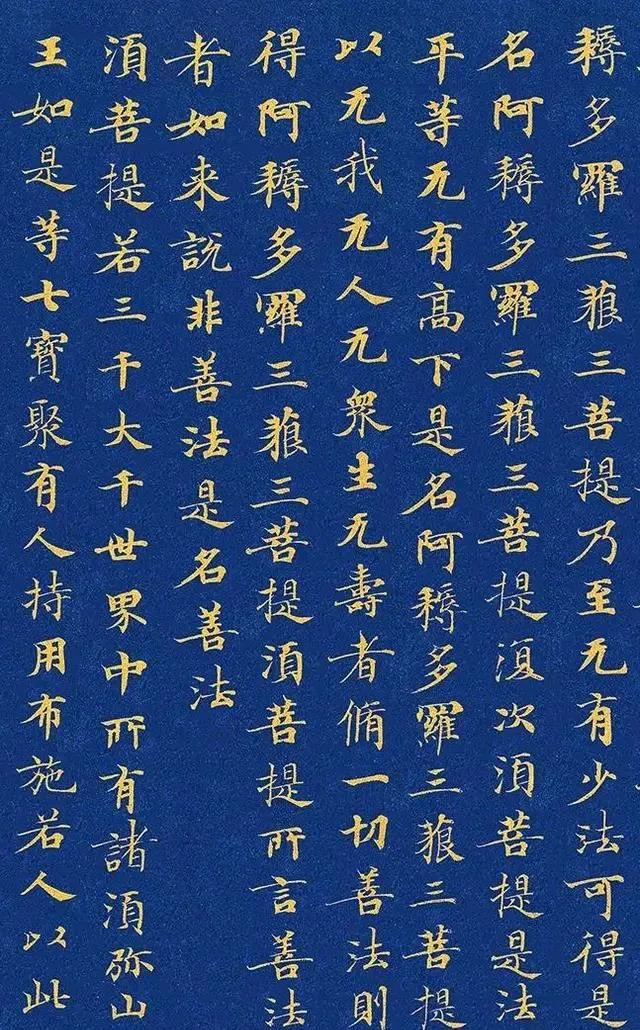 耨多羅三藐三菩提乃至无有少法可得是
名阿耨多羅三藐三菩提復次須菩提是法
平等无有高下是名阿耨多羅三藐三菩提
以无我无人无衆生无壽者脩一切善法則
得阿耨多羅三藐三菩提須菩提所言善法
者如来說非善法是名善法
須菩提若三千大千世界中所有諸須弥山
王如是等七寶聚有人持用布施若人以此